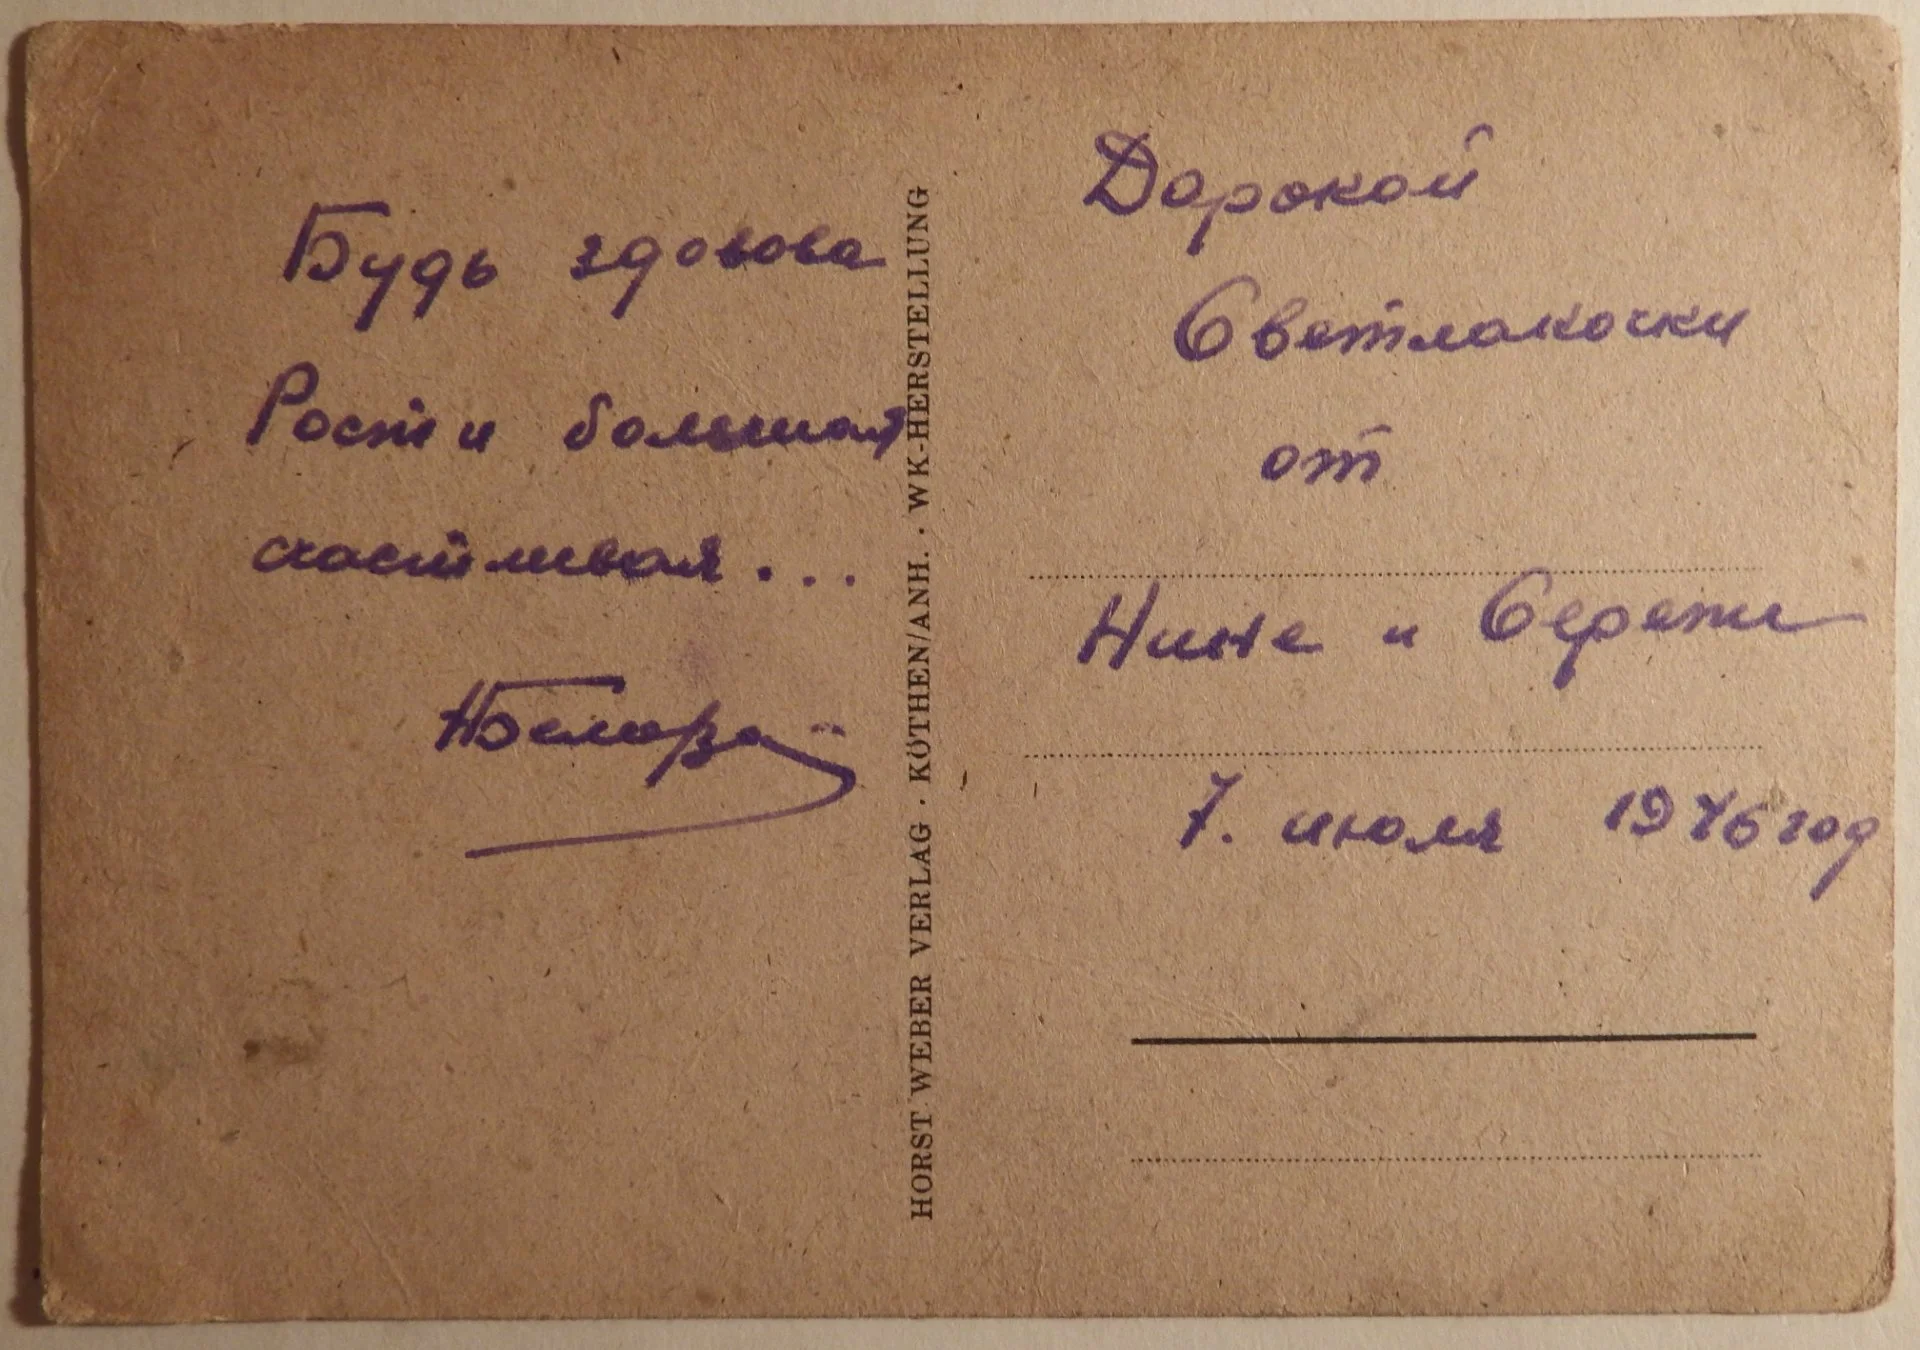 Будь здовова
Расти большая
счастливая...
HORST WEBER VERLAG · KÖTHEN/ANH. · WK-HERSTELLUNG
Дорокой
Светлакочки
от
Нине и Сережи
7. июля 1946 год